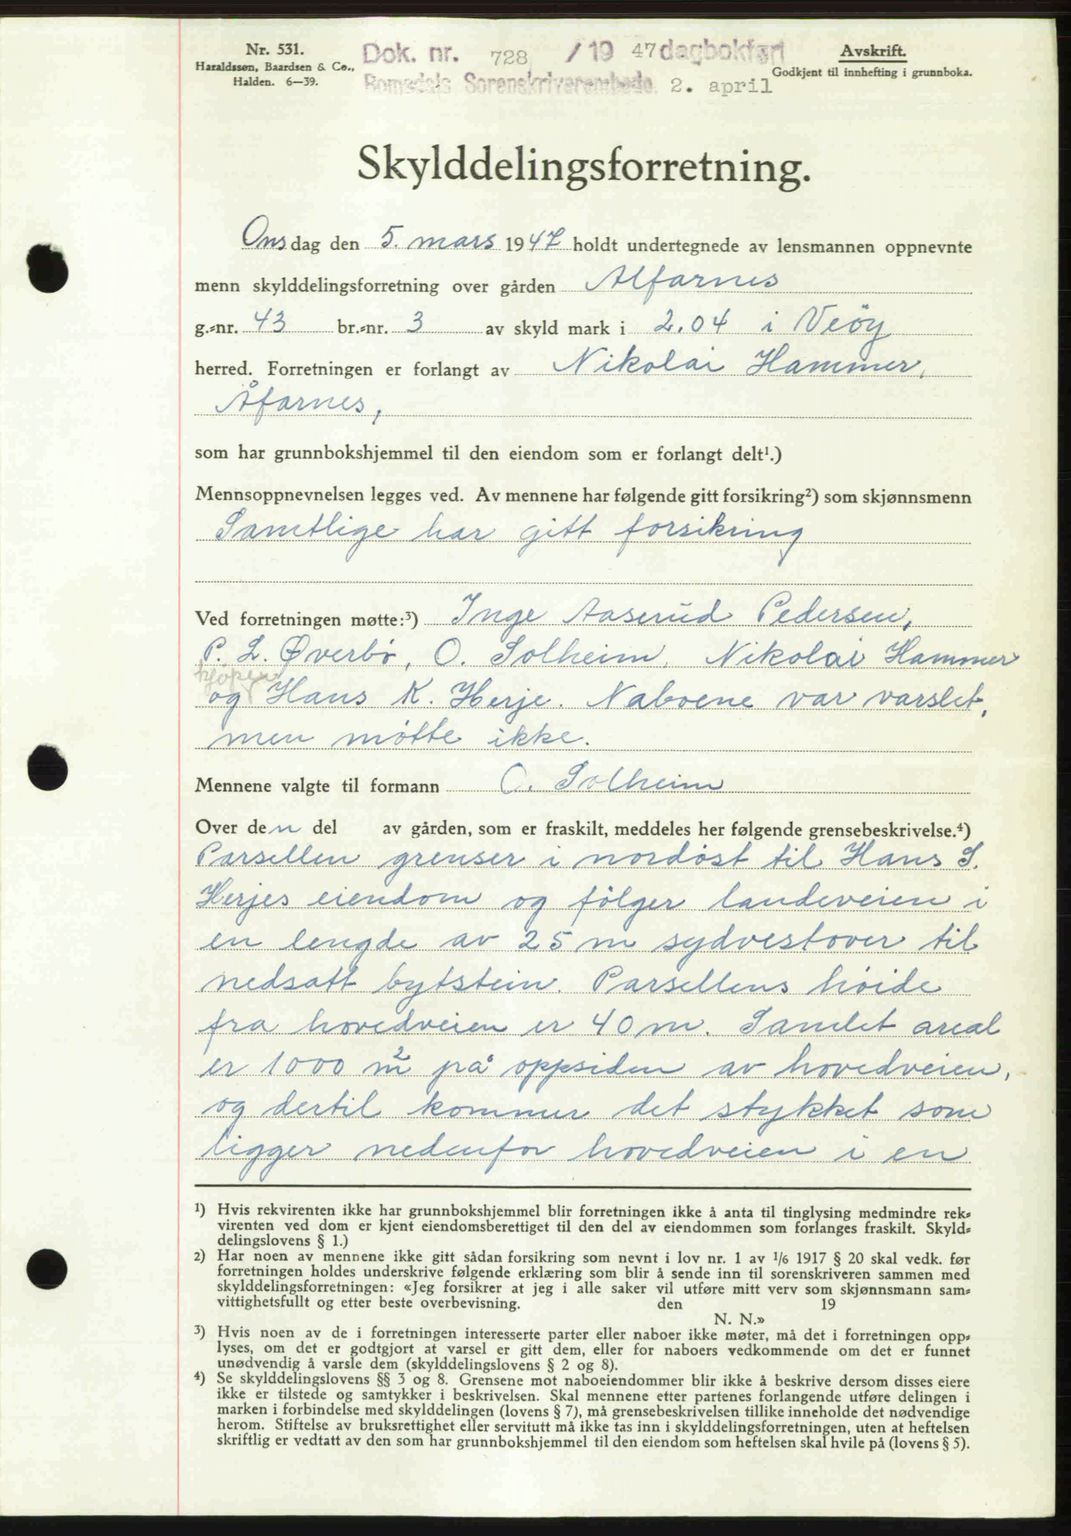 Nr. 531.
Haraldssøn, Baardsen & Co.,
Halden. 6—39.
Dok. nr. 728 /19 47 dagbokført
Romsdals Sorenskriverembede. 2. april
Avskrift.
Godkjent til innhefting i grunnboka.
Skylddelingsforretning.
Onsdag den 5. mars 1947 holdt undertegnede av lensmannen oppnevnte
menn skylddelingsforretning over gården Alfarnes
g.-nr. 43 br.-nr. 3 av skyld mark i 2.04 i Veöy
herred. Forretningen er forlangt av Nikolai Hammer,
Åfarnes,
som har grunnbokshjemmel til den eiendom som er forlangt delt¹.)
Mennsoppnevnelsen legges ved. Av mennene har følgende gitt forsikring²) som skjønnsmenn
Samtlige har gitt forsikring
Ved forretningen møtte:³) Inge Aaserud Pedersen,
P. L. Øverbö, O. Solheim, Nikolai Hammer
kjöper
og Hans K. Herje. Naboene var varslet,
men mötte ikke.
Mennene valgte til formann O. Solheim
Over den del av gården, som er fraskilt, meddeles her følgende grensebeskrivelse.⁴)
Parsellen grenser i nordöst til Hans S.
Herjes eiendom og fölger landeveien i
en lengde av 25 m sydvestover til
nedsatt bytstein. Parsellens höide
fra hovedveien er 40 m. Samlet areal
er 1000 m² på oppsiden av hovedveien,
og dertil kommer det stykket som
ligger nedenfor hovedveien i en
¹) Hvis rekvirenten ikke har grunnbokshjemmel blir forretningen ikke å anta til tinglysing medmindre rek-
virenten ved dom er kjent eiendomsberettiget til den del av eiendommen som forlanges fraskilt. Skyld-
delingslovens § 1.)
²) Har noen av mennene ikke gitt sådan forsikring som nevnt i lov nr. 1 av ¹/₆ 1917 § 20 skal vedk. før
forretningen holdes underskrive følgende erklæring som blir å sende inn til sorenskriveren sammen med
skylddelingsforretningen: «Jeg forsikrer at jeg i alle saker vil utføre mitt verv som skjønnsmann sam-
vittighetsfullt og etter beste overbevisning. den 19
N. N.»
³) Hvis noen av de i forretningen interesserte parter eller naboer ikke møter, må det i forretningen opp-
lyses, om det er godtgjort at varsel er gitt dem, eller for naboers vedkommende om det er funnet
unødvendig å varsle dem (skylddelingslovens § 2 og 8).
⁴) Se skylddelingslovens §§ 3 og 8. Grensene mot naboeiendommer blir ikke å beskrive dersom disses eiere
ikke er tilstede og samtykker i beskrivelsen. Skal mennene etter partenes forlangende utføre delingen i
marken i forbindelse med skylddelingen (lovens § 7), må grensebeskrivelsen tillike inneholde det nødvendige
herom. Stiftelse av bruksrettighet eller servitutt må ikke tas inn i skylddelingsforretningen, uten at heftelsen
skriftlig er vedtatt av den som har grunnbokshjemmel til den eiendom som heftelsen skal hvile på (lovens § 5).